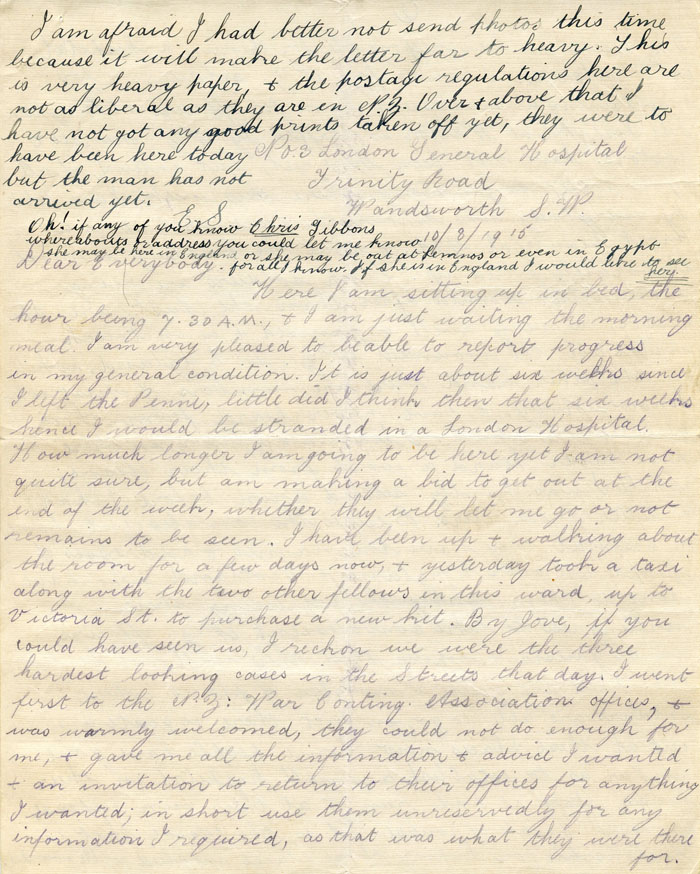 I am afraid I had better not send photos this time
because it will make the letter far to heavy. This
is very heavy paper, & the postage regulations here are
not as liberal as they are in N.Z. Over & above that I
have not got any good prints taken off yet, they were to
have been here today
but the man has not
arrived yet.
E S
No. 3 London General Hospital
Trinity Road
Wandsworth S.W.
10/8/1915
Oh! if any of you know Chris Gibbons
whereabouts or address you could let me know
she may be here in England or she may be out at Lemnos or even in Egypt
for all I know. If she is in England I would like to see
her.
Dear Everybody.
Here I am sitting up in bed, the
hour being 7.30 A.M., & I am just waiting the morning
meal. I am very pleased to beable to report progress
in my general condition. It is just about six weeks since
I left the Penni, little did I think then that six weeks
hence I would be stranded in a London Hospital.
How much longer I am going to be here yet I am not
quite sure, but am making a bid to get out at the
end of the week, whether they will let me go or not
remains to be seen. I have been up & walking about
the room for a few days now, & yesterday took a taxi
along with the two other fellows in this ward, up to
Victoria St. to purchase a new kit. By Jove, if you
could have seen us, I reckon we were the three
hardest looking cases in the Streets that day. I went
first to the N.Z: War Conting. Association offices, &
was warmly welcomed, they could not do enough for
me, & gave me all the information & advice I wanted
& an invitation to return to their offices for anything
I wanted; in short use them unreservedly for any
information I required, as that was what they were there
for.